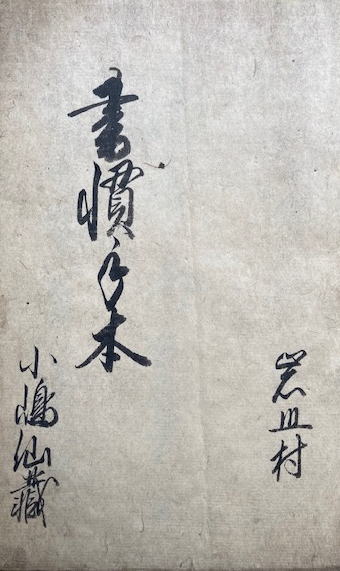 岩皿村
書慣手本
小嶋仙藏